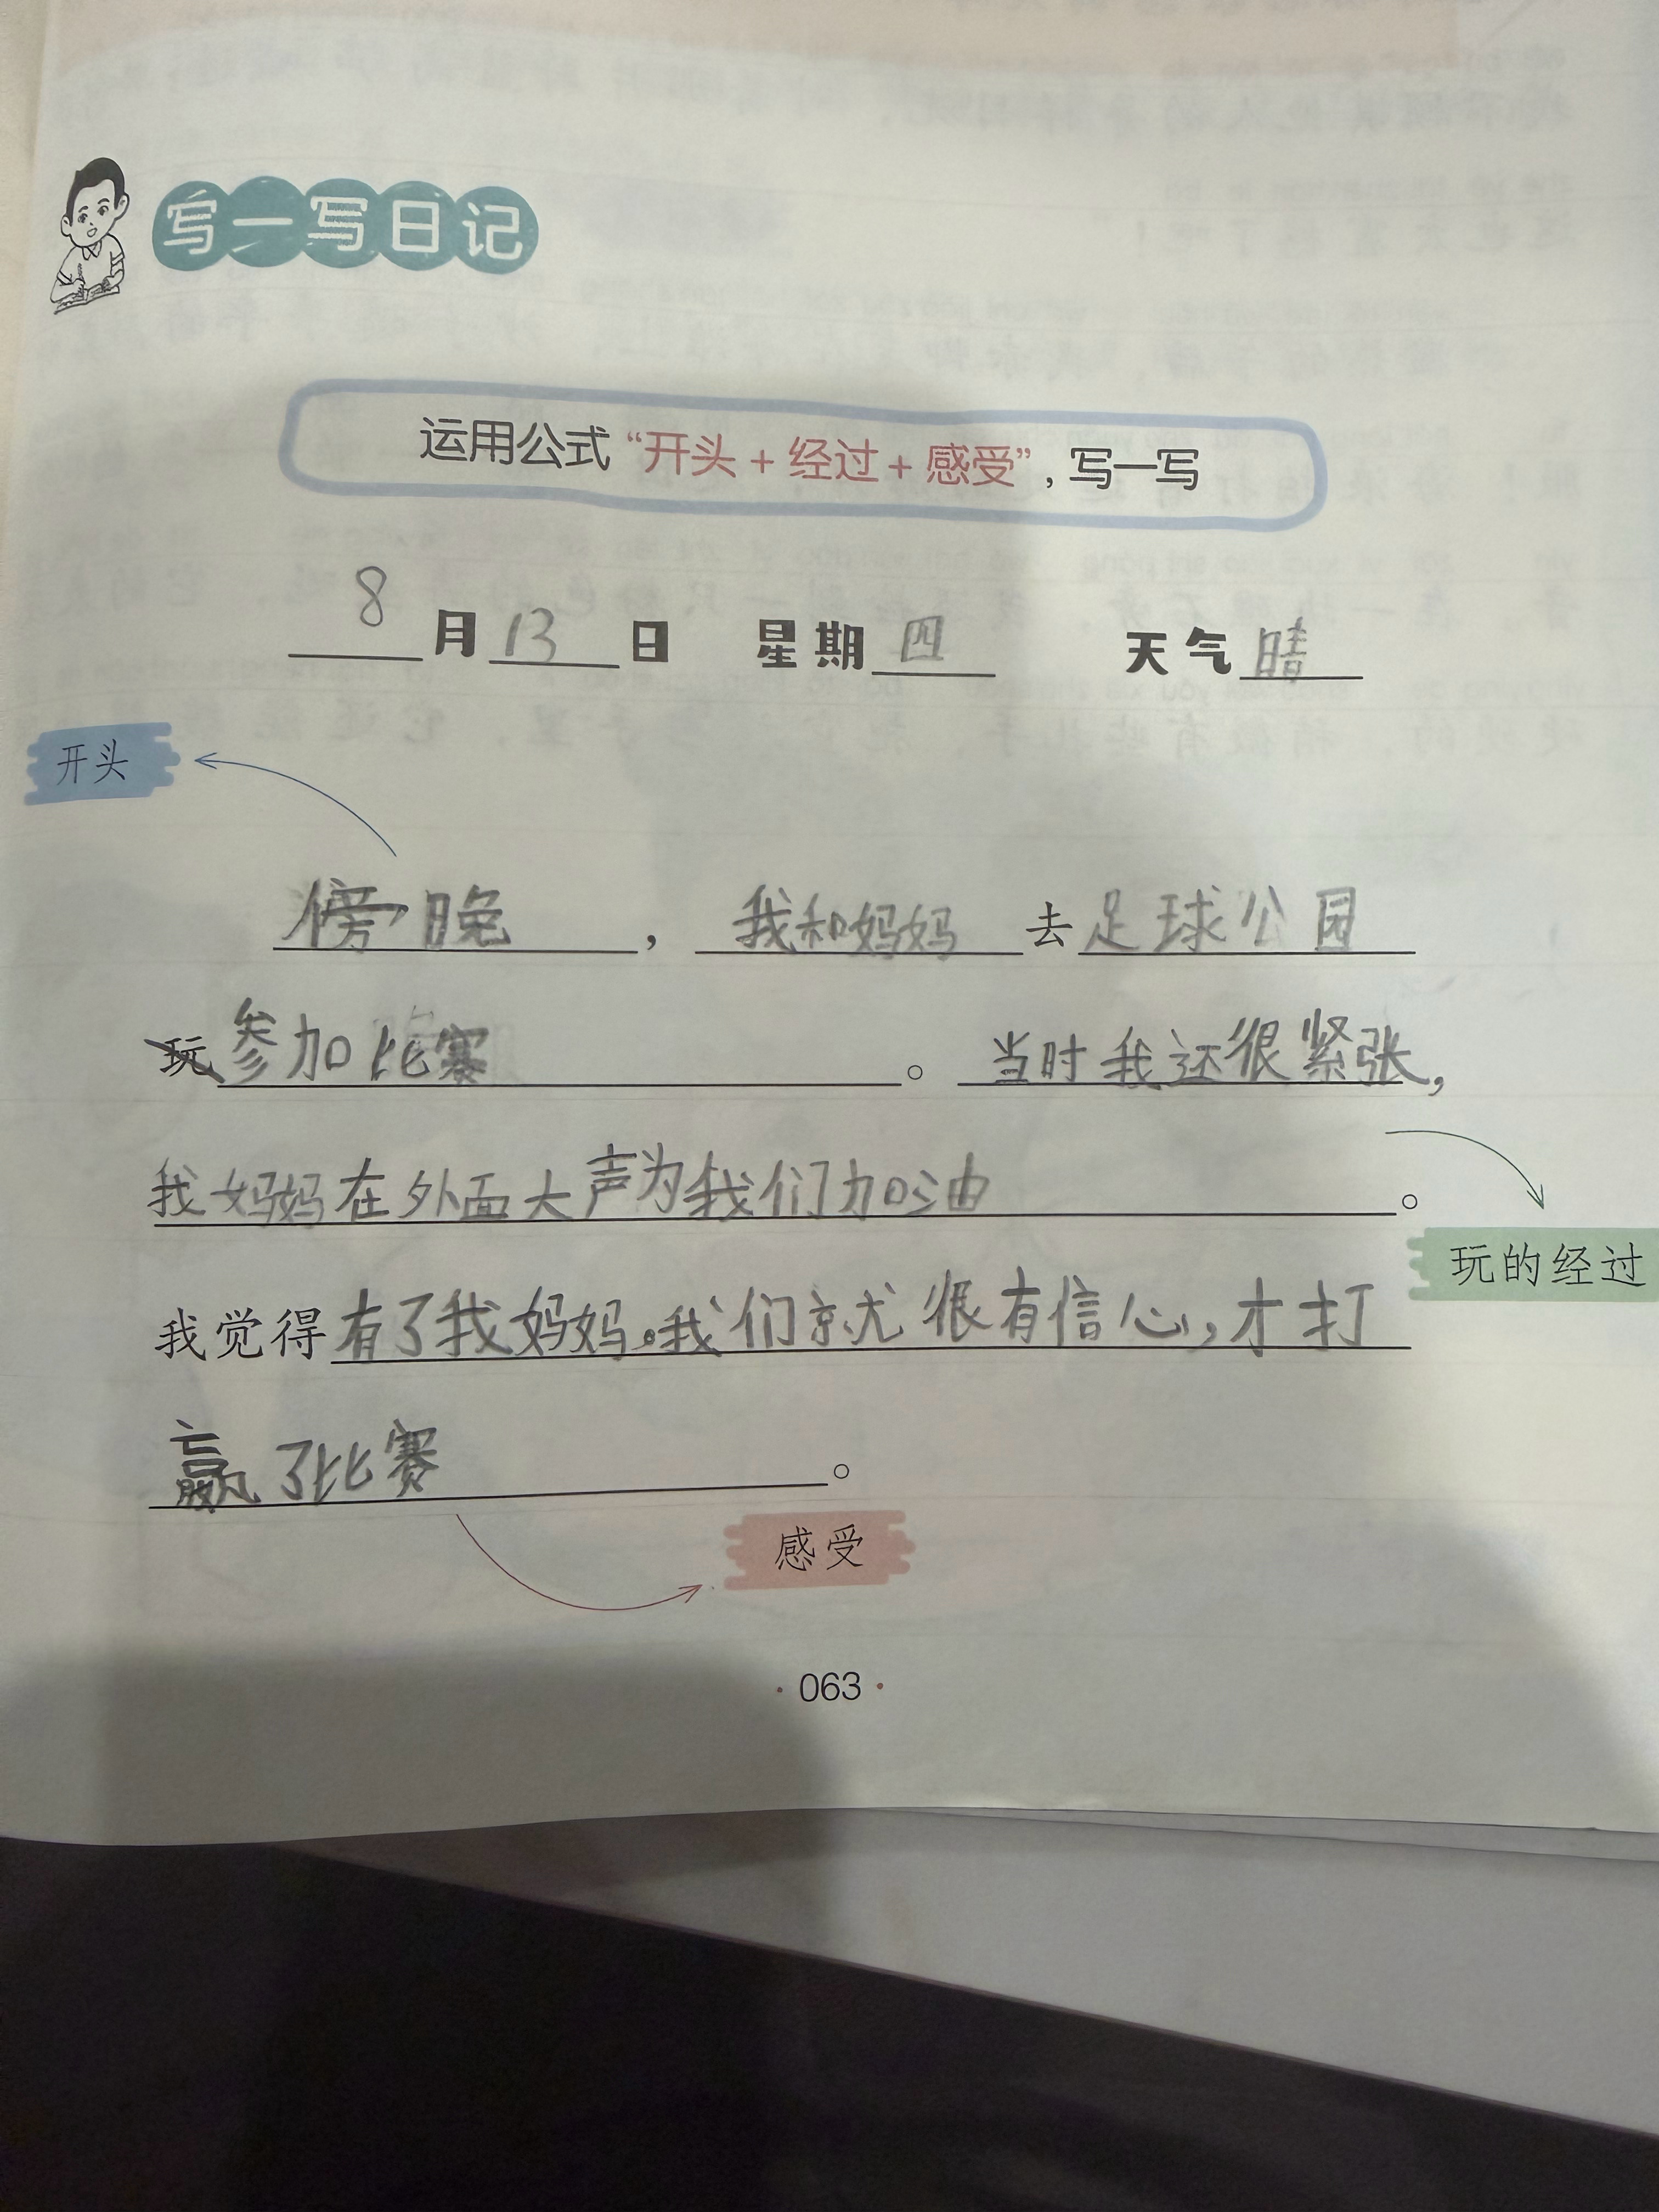 写一写日记
运用公式“开头+经过+感受”,写一写
8月13日 星期四 天气晴
开头
傍晚,我和妈妈去足球公园
玩参加比赛。当时我还很紧张,
我妈妈在外面大声为我们加油。
玩的经过
我觉得有了我妈妈。我们就很有信心,才打
赢了比赛。
感受
·063·